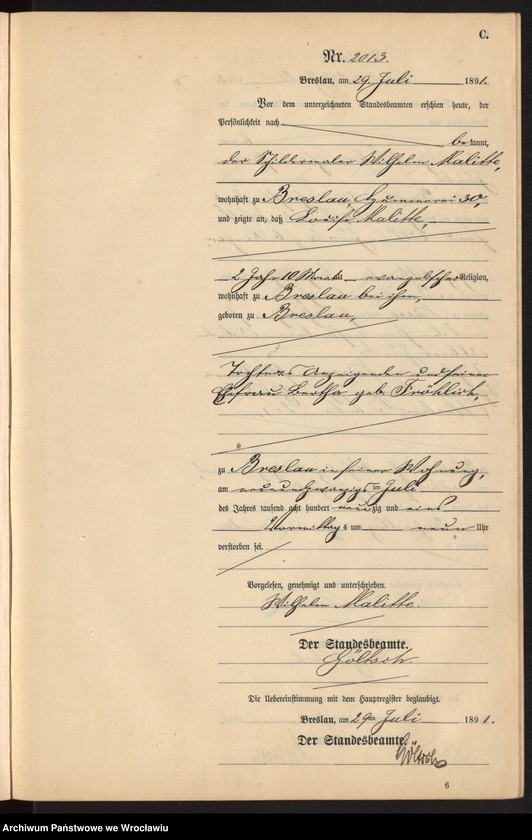 C.
Nr. 2013.
Breslau, am 29. Juli 1891.
Vor dem unterzeichneten Standesbeamten erschien heute, der
Persönlichkeit nach
bekannt,
der Schildermaler Wilhelm Malitte,
wohnhaft zu Breslau, Hummerei 30,
und zeigte an, daß Louise Malitte,
2 Jahr 10 Monate evangelischer Religion,
wohnhaft zu Breslau bei ihm,
geboren zu Breslau,
Tochter des Anzeigenden und seiner
Ehefrau Bertha geb. Fröhlich,
zu Breslau in seiner Wohnung,
am neunundzwanzigsten Juli
des Jahres tausend acht hundert neunzig und eins
Vormittags um neun Uhr
verstorben sei.
Vorgelesen, genehmigt und unterschrieben.
Wilhelm Malitte.
Der Standesbeamte.
Göltsch.
Die Uebereinstimmung mit dem Hauptregister beglaubigt.
Breslau, am 29. Juli 1891.
Der Standesbeamte.
Göltsch
6
Archiwum Państwowe we Wrocławiu